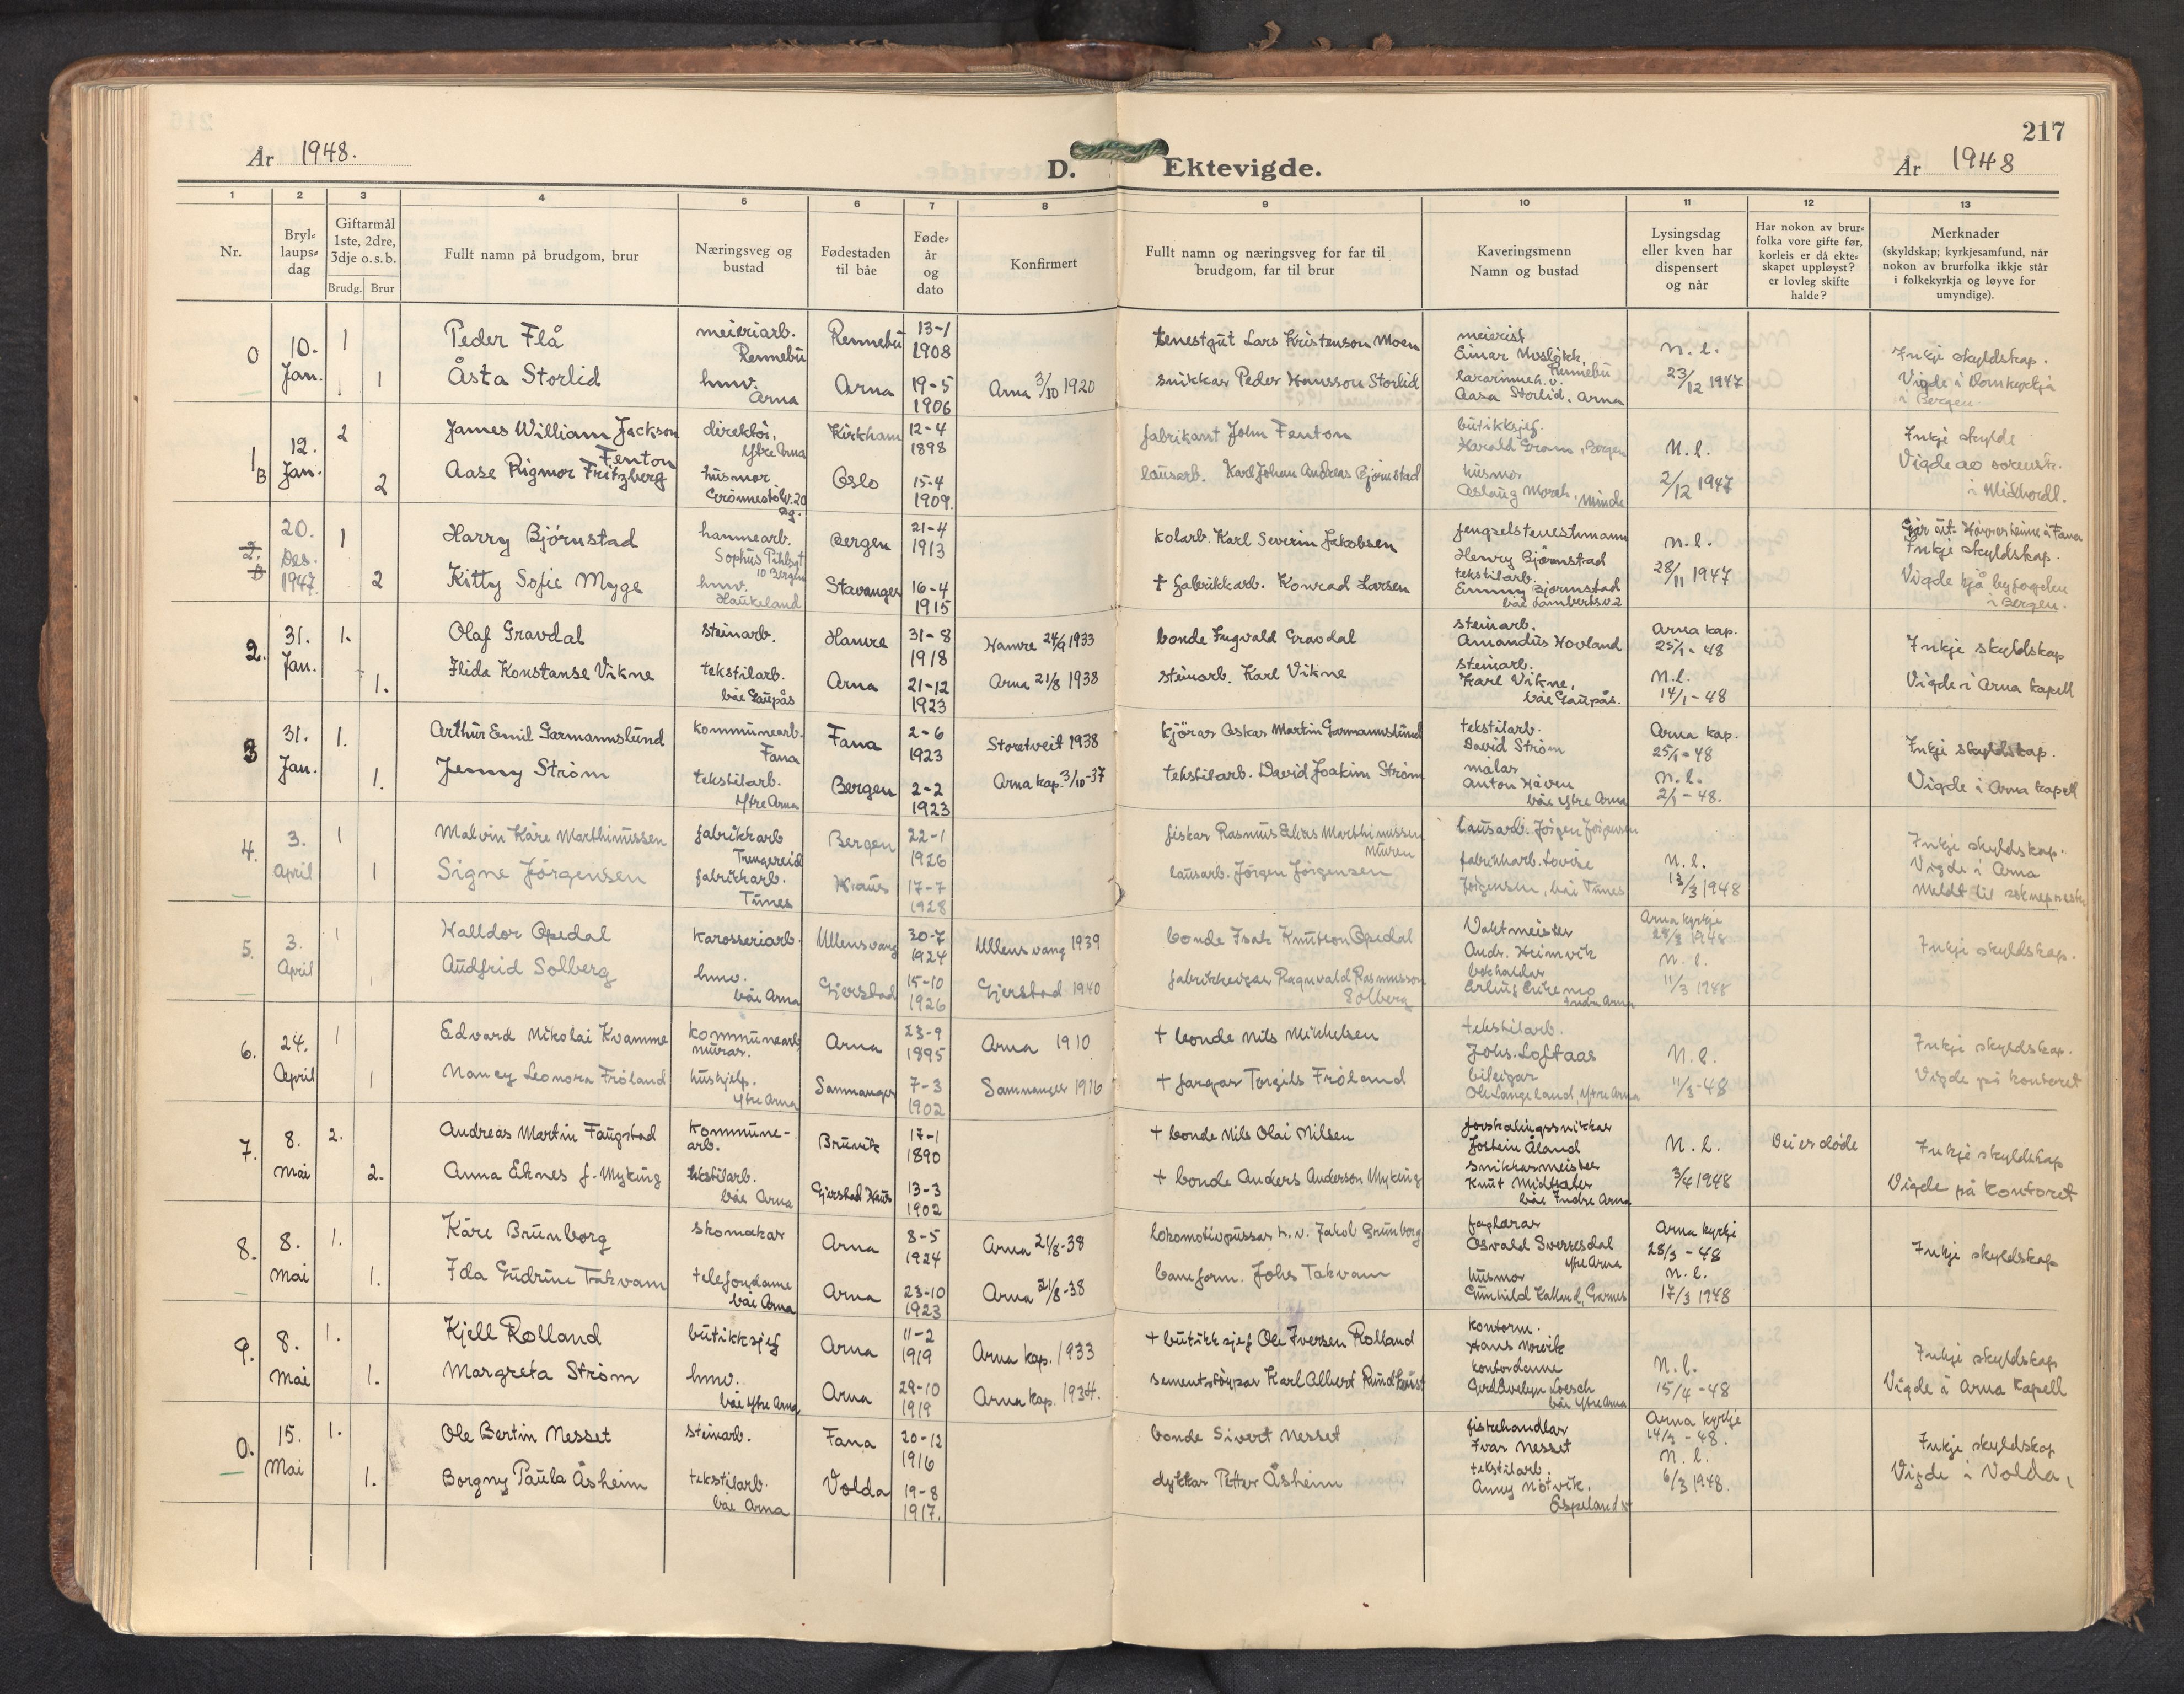 217
År 1948.
D. Ektevigde.
År 1948
1 2 3 4 5 6 7 8 9 10 11 12 13
Nr.
Bryllaupsdag
Giftarmål 1ste, 2dre, 3dje o.s.b.
Brudg. Brur
Fullt namn på brudgom, brur
Næringsveg og bustad
Fødestaden til båe
Fødeår og dato
Konfirmert
Fullt namn og næringsveg for far til brudgom, far til brur
Kaveringsmenn Namn og bustad
Lysingsdag eller kven har dispensert og når
Har nokon av brurfolka vore gifte før, korleis er då ekteskapet uppløyst? er lovleg skifte halde?
Merknader (skyldskap; kyrkjesamfund, når nokon av brurfolka ikkje står i folkekyrkja og løyve for umyndige).
0 10. Jan. 1 Peder Flå meieriarb. Rennebu Rennebu 13-1 1908 tenestgut Lars Kristenson Moen meierist Einar Mosløkk, Rennebu n. l. Inkje skyldskap.
1 Åsta Storlid hmv. Arna Arna 19-5 1906 Arna 3/10 1920 snikkar Peder Hansson Storlid lærarinneh.v. Aasa Storlid, Arna 23/12 1947 Vigde i Domkyrkja i Bergen.
1 B 12. Jan. 2 James William Jackson Fenton direktör, Ytre Arna Kirkham 12-4 1898 fabrikant John Fenton butikksjef. Harald Gram, Bergen N. l. Inkje skylde
2 Aase Rigmor Fritzberg husmor Grönnestölv. 20 Bg. Oslo 15-4 1909. lausarb. Karl Johan Andreas Bjørnstad husmor Aslaug Mörch, Minde 2/12 1947 Vigde av sorensk. i Midhordl.
2. B 20. Des. 1947. 1 Harry Bjørnstad hamnearb. Sophus Pihlsgt 10 Bergen Bergen 21-4 1913 kolarb. Karl Severin Jakobsen fengselstenestmann Henry Bjørnstad n. l. Inkje skyldskap.
2 Kitty Sofie Myge hmv. Haukeland Stavanger 16-4 1915 † fabrikkarb. Konrad Larsen tekstilarb. Emmy Bjørnstad båe Lambertsv. 2 28/11 1947 Vigde hjå byfogden i Bergen.
2. 31. Jan. 1. Olaf Gravdal steinarb. Hamre 31-8 1918 Hamre 24/9 1933 bonde Ingvald Gravdal steinarb. Amandus Hovland Arna kap. 25/1-48 Inkje skyldskap
1. Ilida Konstanse Vikne tekstilarb. båe Gaupås Arna 21-12 1923 Arna 21/8 1938 steinarb. Karl Vikne steinarb. Karl Vikne, båe Gaupås. N.l. 14/1-48 Vigde i Arna kapell
3 31. Jan. 1. Arthur Emil Garmannslund kommunearb. Fana Fana 2-6 1923 Storetveit 1938 kjörar Oskar Martin Garmannslund tekstilarb. David Ström Arna kap. 25/1-48 Inkje skyldskap.
1. Jenny Ström tekstilarb. Ytre Arna Bergen 2-2 1923 Arna kap. 3/10-37 tekstilarb. David Joakim Ström målar Anton Håven båe Ytre Arna n. l. 2/1-48. Vigde i Arna kapell
4. 3. April 1 Malvin Kåre Marthinussen fabrikkarb Trengereid Bergen 22-1 1926 fiskar Rasmus Elias Marthinussen Muren lausarb. Jörgen Jörgensen N. l. Inkje skyldskap.
1 Signe Jörgensen fabrikkarb. Tunes Haus 17-7 1928 lausarb. Jörgen Jörgensen fabrikkarb. Lovise Jörgensen, båe Tunes 13/3 1948 Vigde i Arna Meldt til soknepresten
5. 3. April 1 Halldor Opedal karosseriarb. Ullensvang 30-7 1924 Ullensvang 1939 bonde Isak Knutson Opedal Vaktmeister Andr. Heimvik Arna kyrkje 28/3 1948 Inkje skyldskap.
1 Audfrid Solberg hmv. båe Arna Gjerstad 15-10 1926 Gjerstad 1940 fabrikkeigar Ragnvald Rasmusson Solberg bokhaldar Indre Arna n. l. 11/3 1948
6. 24. April 1 Edvard Nikolai Kvamme kommunearb, murar. Arna 23-9 1895 Arna 1910 † bonde Nils Mikkelsen tekstilarb. Johs. Loftaas N. l. Inkje skyldskap.
1 Nancy Leonora Fröland hushjelp. Ytre Arna Samnanger 7-3 1902 Samnanger 1916 † fargar Torgils Fröland bileigar Ole Langeland, Ytre Arna 11/3-48 Vigde på kontoret
7. 8. Mai 2. Andreas Martin Faugstad kommunearb. Bruvik 17-1 1890 † bonde Nils Olai Nilsen forskalingssnikkar Jostein Åland N. l. Dei er döde Inkje skyldskap
2. Anna Eknes f. Myking tekstilarb. båe Arna Gjerstad Haus 13-3 1902 † bonde Anders Anderson Myking snikkarmeister Knut Midtsæter båe Indre Arna 3/4 1948 Vigde på kontoret
8. 8. Mai 1. Kåre Brunborg skomakar Arna 8-5 1924 Arna 21/8-38 lokomotivpussar h.v. Jakob Brunborg faglærar Osvald Sverresdal Ytre Arna Arna kyrkje 28/3-48 Inkje skyldskap
1. Ida Gudrun Takvam telefondame båe Arna Arna 23-10 1923 Arna 21/8-38 baneform. Johs Takvam husmor Gunhild Kalland, Garnes n. l. 17/3 1948
9. 8. Mai 1. Kjell Rolland butikksjef Arna 11-2 1919 Arna kap. 1933 † butikksjef Ole Iversen Rolland kontorm. Hans Norvik N. l. Inkje skyldskap
1. Margreta Ström hmv. båe Ytre Arna Arna 29-10 1919 Arna kap. 1934. sementstöypar Karl Albert Rundhaust kontordame Gerd Evelyn Loesch båe Ytre Arna 15/4-48 Vigde i Arna Kapell
0. 15. Mai 1. Ole Bertin Nesset steinarb. Fana 20-12 1916 bonde Sivert Nesset fiskehandlar Ivar Nesset Arna kyrkje 14/3-48. Inkje skyldskap
1. Borgny Paula Åsheim tekstilarb. båe Arna Volda 19-8 1917. dykkar Petter Åsheim tekstilarb. Anny Nötvik. Espeland N. l. 6/3 1948. Vigde i Volda,